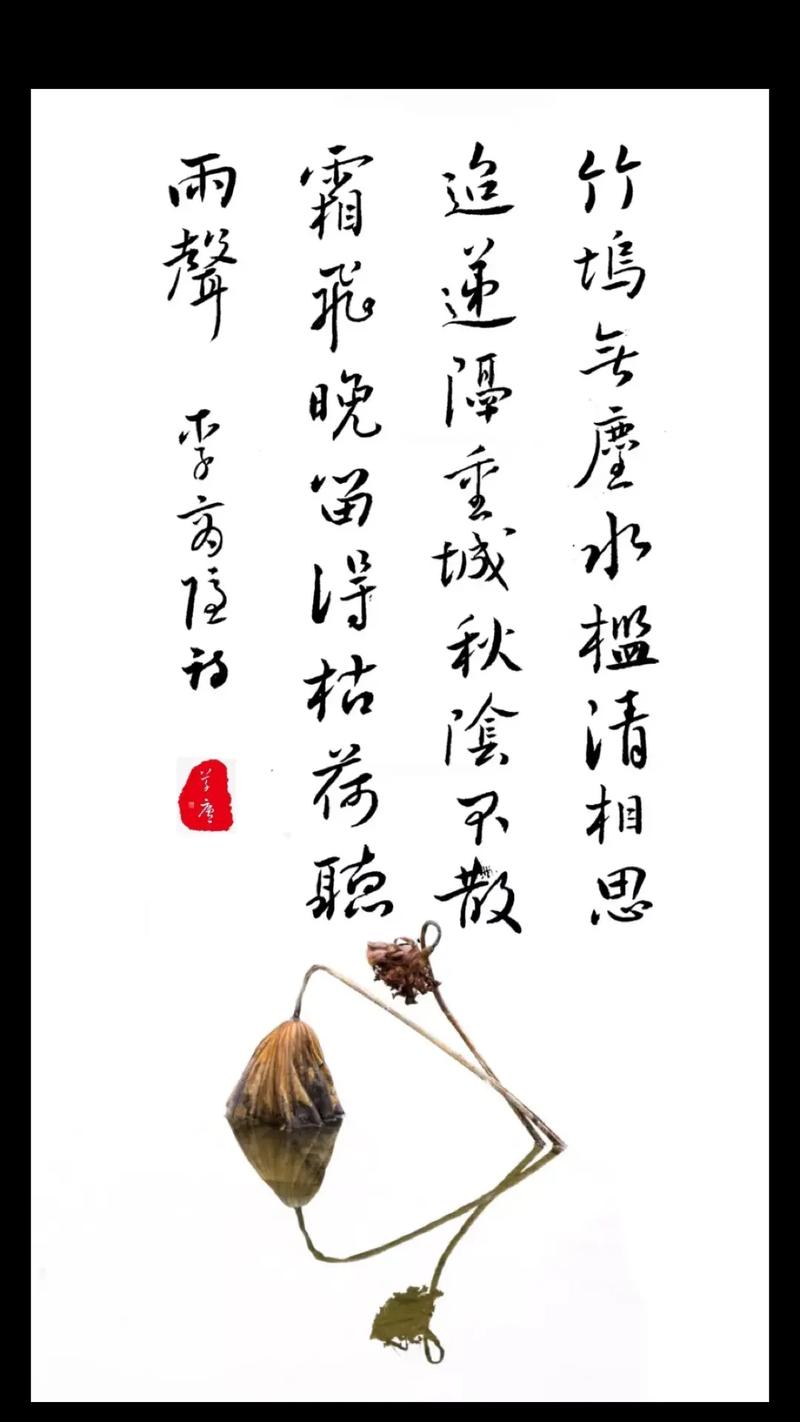 竹塢無塵水檻清相思
迢遞隔重城秋陰不散
霜飛晚留得枯荷聽
雨聲 李商隱詩